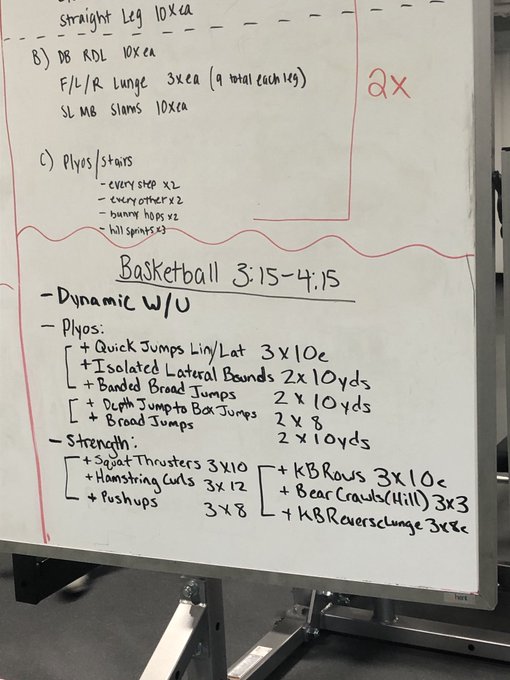 Straight Leg 10xea
B) DB RDL 10xea
F/L/R Lunge 3xea (9 total each leg)
SL MB Slams 10xea
2x
C) Plyos/Stairs
- every step x2
- every other x2
- bunny hops x2
- hill sprints x3
Basketball 3:15-4:15
- Dynamic W/U
- Plyos:
+ Quick Jumps Lin/Lat 3x10e
+ Isolated Lateral Bounds 2x10yds
+ Banded Broad Jumps 2x10yds
+ Depth Jump to Box Jumps 2x8
+ Broad Jumps 2x10yds
- Strength:
+ Squat Thrusters 3x10
+ Hamstring Curls 3x12
+ Pushups 3x8
+ KB Rows 3x10e
+ Bear Crawls (Hill) 3x3
+ KB Reverse Lunge 3x8e